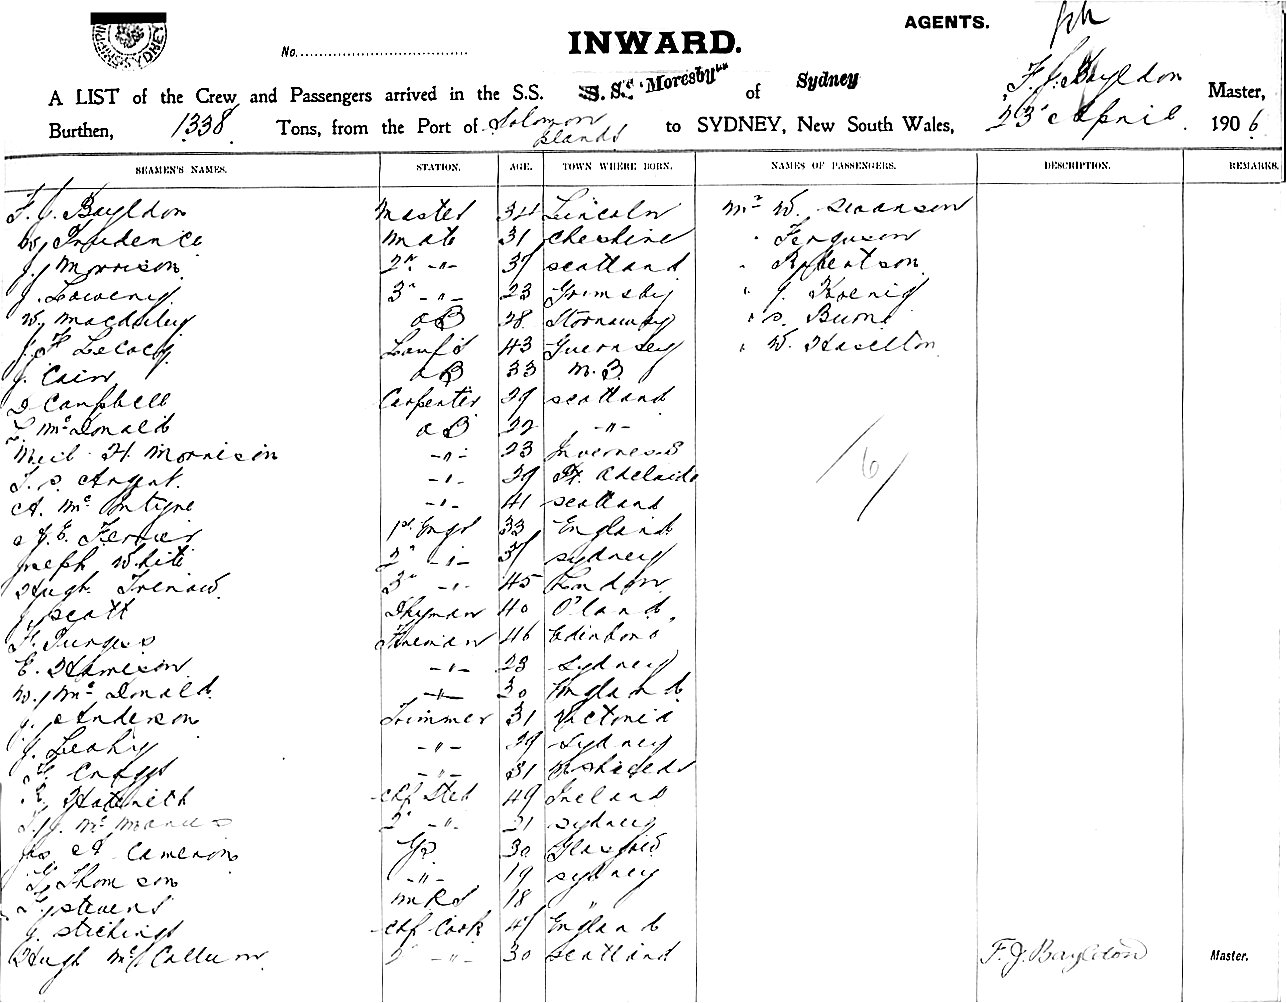 SYDNEY
No.
INWARD.
AGENTS.
A LIST of the Crew and Passengers arrived in the S.S. S.S. "Moresby" of Sydney F. J. Bayldon Master,
Burthen, 1338 Tons, from the Port of Solomon Islands to SYDNEY, New South Wales, 23 April 1906
SEAMEN'S NAMES. STATION. AGE. TOWN WHERE BORN. NAMES OF PASSENGERS. DESCRIPTION. REMARKS.
F. J. Bayldon Master 34 Lincoln Mr W. Swanson
W. Prudence Mate 31 Cheshire " Ferguson
J. Morrison 2nd -"- 37 Scotland " Robertson
J. 3rd -"- 23 Grimsby " J. Koenig
W. Macauley AB 28 Stornaway " S. Burns
J. F. Lecocq Lamps 43 Guernsey " W. Haselton
J. Cain AB 33 M. B.
D Campbell Carpenter 29 Scotland
McDonald AB 22 -"-
Neil H. Morrison -"- 23 Inverness
T. S. Argent -"- 29 Pt. Adelaide
A. McIntyre -"- 41 Scotland
J. E. Ferrier 1st Engr 33 England
Joseph White 2nd -"- 37 Sydney
Hugh 3rd -"- 45 London
J. Scott 40
Fireman 46
E. Harrison -"- 23 Sydney
W. McDonald -"- 30 England
J. Anderson Trimmer 31 Victoria
J. Leahy -"- 29 Sydney
Craggs -"- 31 N Shields
chf Std 49 Ireland
T. J. McManus 2nd -"- 21 Sydney
Jas A Cameron 30 Glasgow
G. Thomson -"- 19 Sydney
Stevens 18 "
J. Stichings chf Cook 47 England
Hugh McCallum 2 -"- 30 Scotland
/6/
F. J. Bayldon Master.